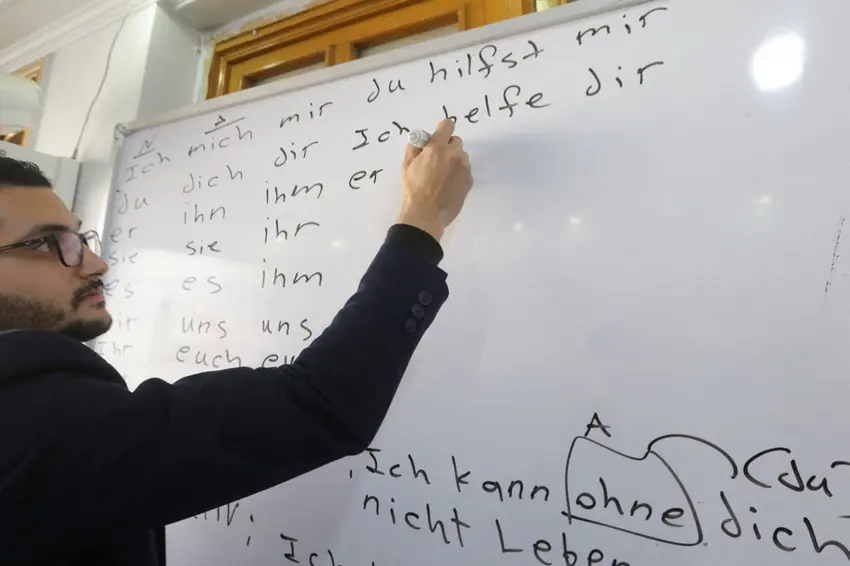 N A
Ich mich mir du hilfst mir
du dich dir Ich helfe dir
er ihn ihm er
sie sie ihr
es es ihm
uns uns
Ihr euch
A
Ich kann ohne dich (du)
nicht Leben
Ich